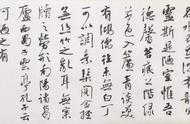 靈斯是陋室惟吾
德馨苔痕上階綠
草色入簾青談笑
有鴻儒往來無白丁
可以調素琴閱金經
無絲竹之亂耳無案
牘之勞形南陽諸葛
廬西蜀子雲亭孔子云
何陋之有